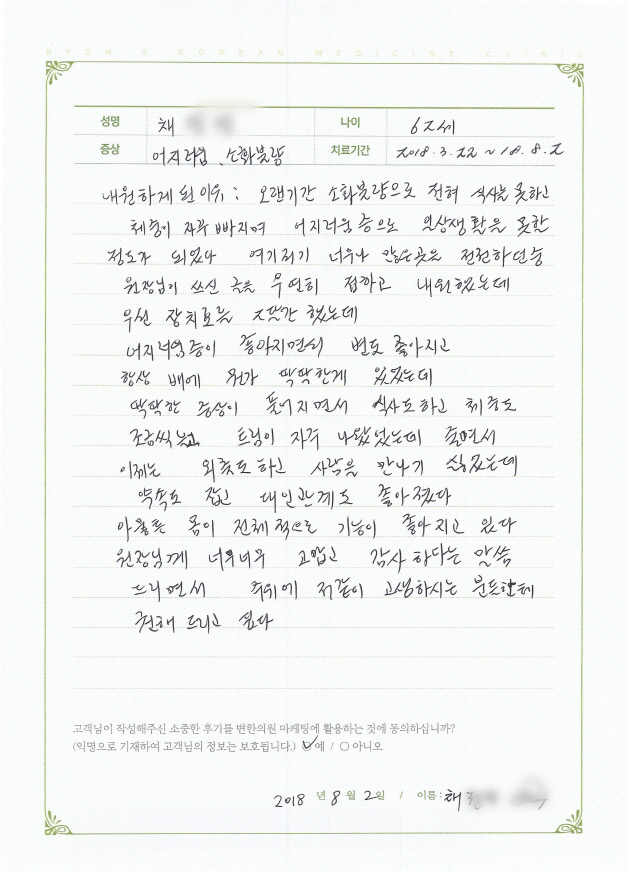 BYUN'S KOREAN MEDICINE CLINIC
성명 채 나이 62세
증상 어지러움, 소화불량 치료기간 2018.3.22 ~ 18.8.2
내원하게 된 이유: 오랜기간 소화불량으로 전혀 식사를 못하고
체중이 자꾸 빠지며 어지러움증으로 일상생활을 못한
정도가 되었다 여기저기 너무나 많은곳을 전전하던중
원장님이 쓰신 글을 우연히 접하고 내원했는데
우선 장치료를 2달간 했는데
어지러움증이 좋아지면서 변도 좋아지고
항상 배에 뭔가 딱딱한게 있었는데
딱딱한 증상이 풀어지면서 식사도하고 체중도
조금씩 늘고 트림이 자주 나왔었는데 줄면서
이제는 외출도하고 사람을 만나기 싫었는데
약속도 잡고 대인관계도 좋아졌다
아울른 몸이 전체적으로 기능이 좋아지고 있다
원장님께 너무너무 고맙고 감사하다는 말씀
드리면서 주위에 저같이 고생하시는 분들한테
권해 드리고 싶다
고객님이 작성해주신 소중한 후기를 변한의원 마케팅에 활용하는 것에 동의하십니까?
(익명으로 기재하여 고객님의 정보는 보호됩니다.) ○예 / ○아니오
2018 년 8 월 2일 / 이름: 채